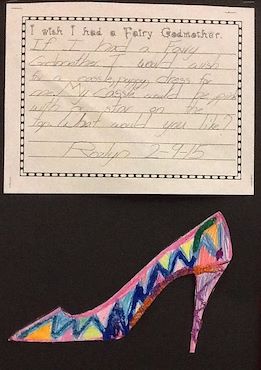 I wish I had a Fairy Godmother.
If I had a Fairy
Godmother I would wish
for a castle, puppy, dress for
me! My castle would be pink
with a star on the
top. What would you like?
2-9-15